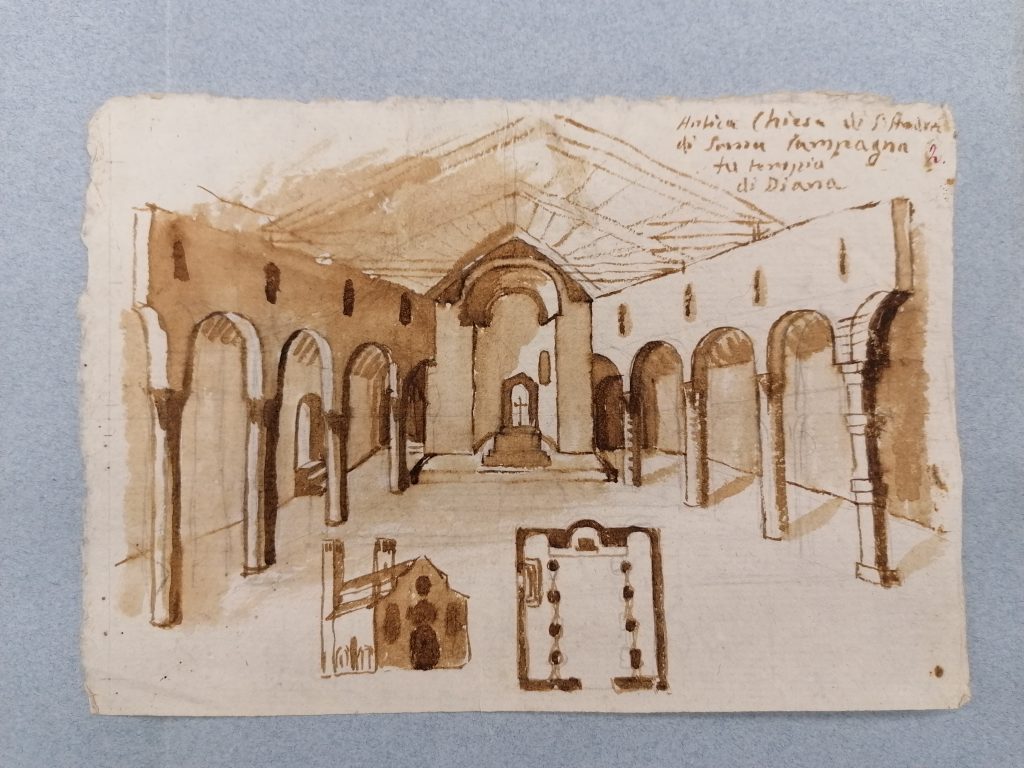 Antica Chiesa di S. Andrea
di Somma Campagna
fu tempio
di Diana
2.